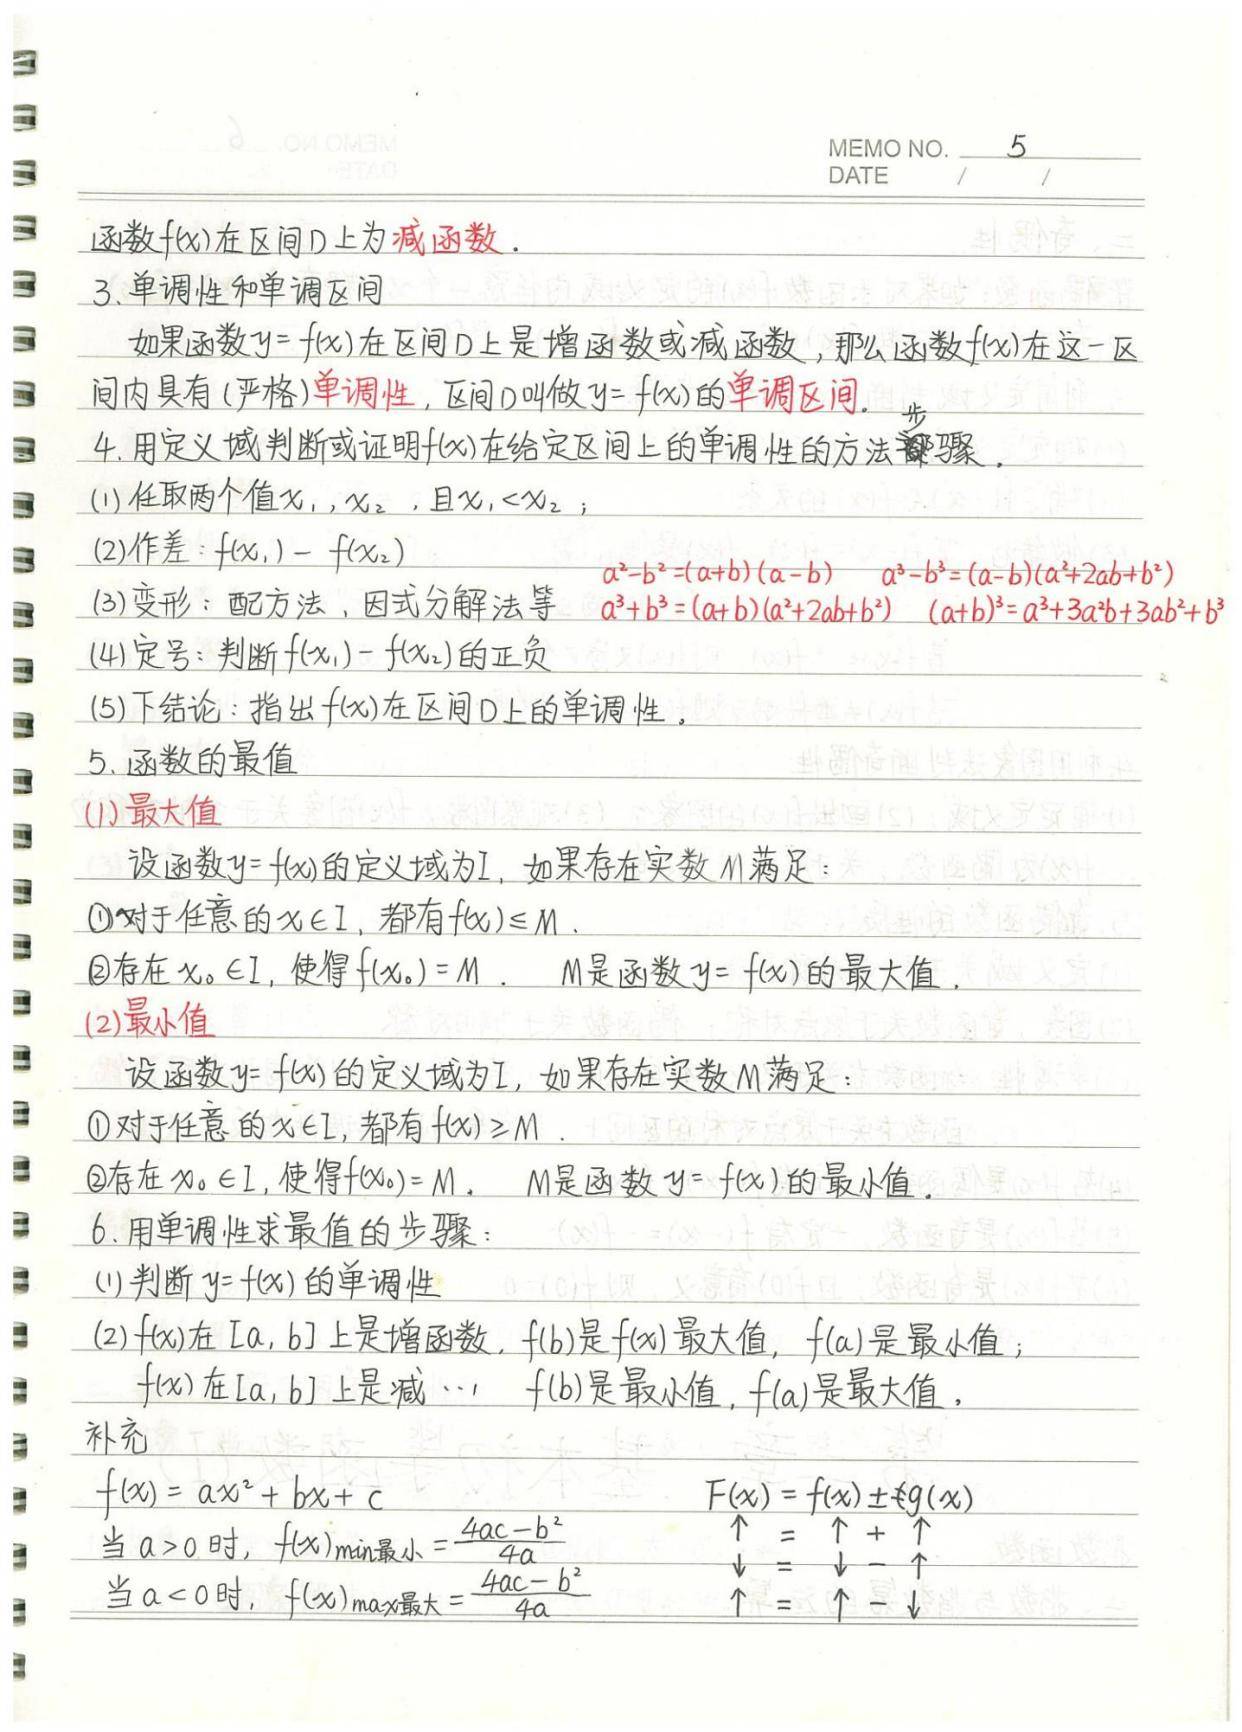 MEMO NO. 5
DATE / /
函数f(x)在区间D上为减函数.
3.单调性和单调区间
如果函数y=f(x)在区间D上是增函数或减函数,那么函数f(x)在这一区
间内具有(严格)单调性,区间D叫做y=f(x)的单调区间.
4.用定义域判断或证明f(x)在给定区间上的单调性的方法步骤.
(1)任取两个值x₁,x₂,且x₁<x₂;
(2)作差:f(x₁)-f(x₂)
a²-b²=(a+b)(a-b) a³-b³=(a-b)(a²+2ab+b²)
(3)变形:配方法、因式分解法等 a³+b³=(a+b)(a²+2ab+b²) (a+b)³=a³+3a²b+3ab²+b³
(4)定号:判断f(x₁)-f(x₂)的正负
(5)下结论:指出f(x)在区间D上的单调性.
5.函数的最值
(1)最大值
设函数y=f(x)的定义域为I,如果存在实数M满足:
①对于任意的x∈I,都有f(x)≤M.
②存在x₀∈I,使得f(x₀)=M. M是函数y=f(x)的最大值.
(2)最小值
设函数y=f(x)的定义域为I,如果存在实数M满足:
①对于任意的x∈I,都有f(x)≥M.
②存在x₀∈I,使得f(x₀)=M. M是函数y=f(x)的最小值.
6.用单调性求最值的步骤:
(1)判断y=f(x)的单调性
(2)f(x)在[a,b]上是增函数,f(b)是f(x)最大值,f(a)是最小值;
f(x)在[a,b]上是减…, f(b)是最小值,f(a)是最大值.
补充
f(x)=ax²+bx+c F(x)=f(x)±g(x)
当a>0时,f(x)min最小=(4ac-b²)/4a ↑ = ↑ + ↑
↓ = ↓ - ↑
当a<0时,f(x)max最大=(4ac-b²)/4a ↑ = ↑ - ↓